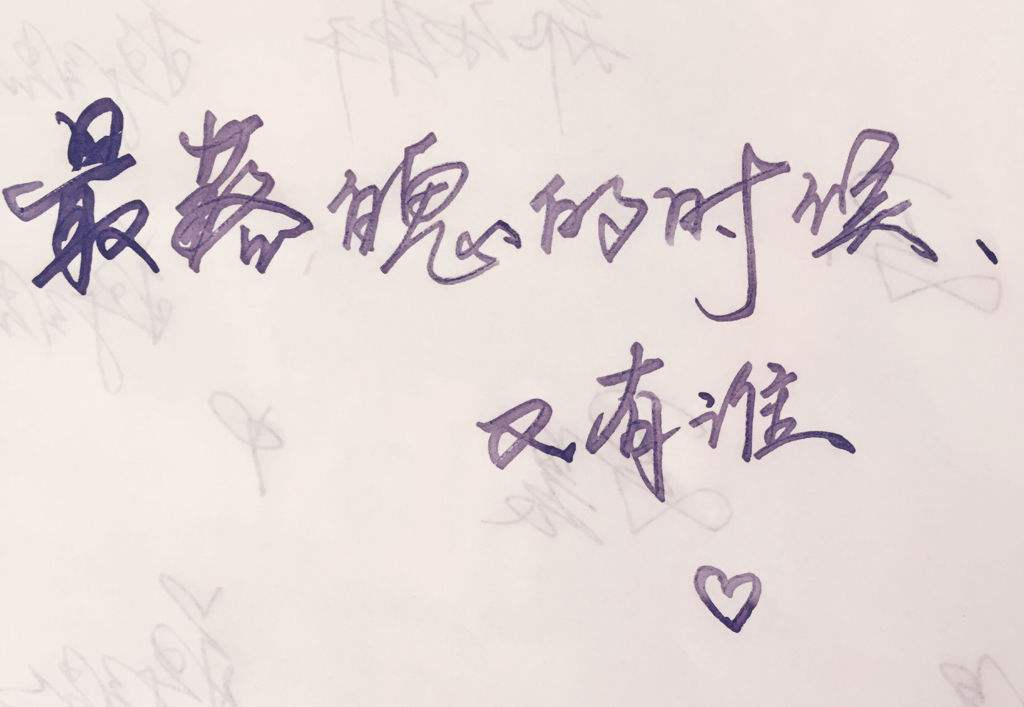 最落魄的时候、
又有谁